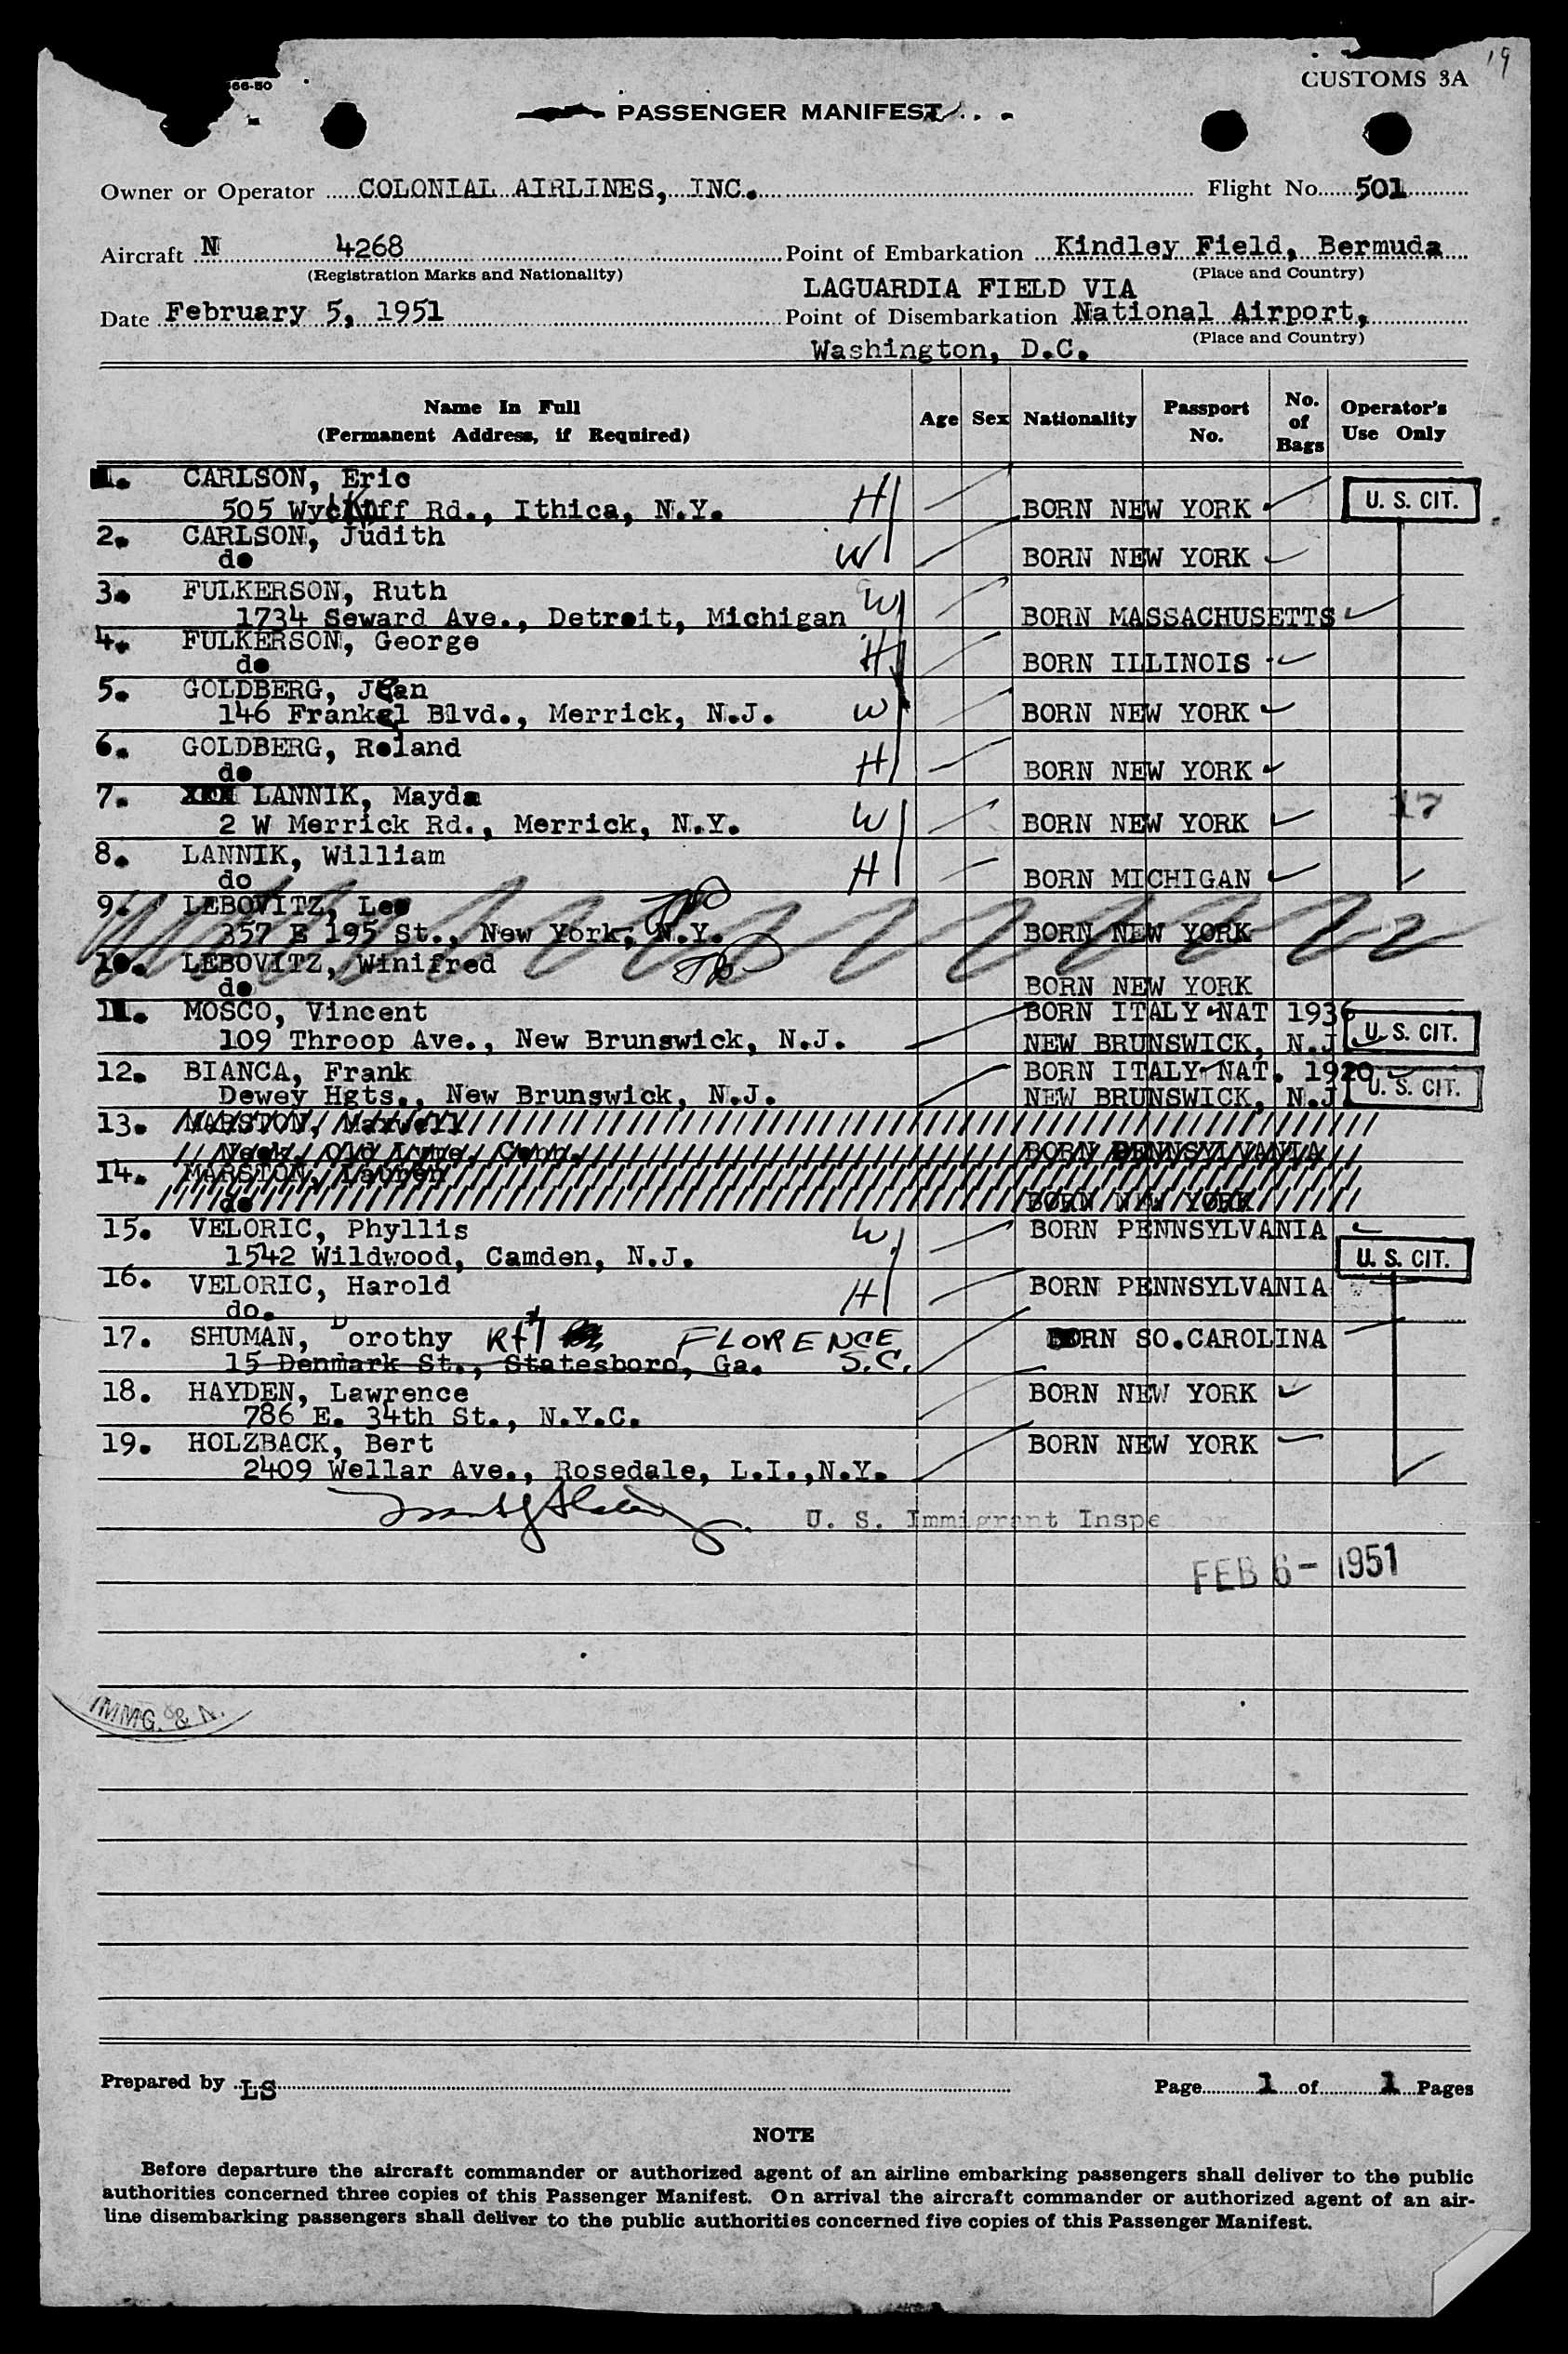 19
66-50
CUSTOMS 3A
PASSENGER MANIFEST
Owner or Operator COLONIAL AIRLINES, INC. Flight No. 501
Aircraft N 4268 Point of Embarkation Kindley Field, Bermuda
(Registration Marks and Nationality) (Place and Country)
LAGUARDIA FIELD VIA
Date February 5, 1951 Point of Disembarkation National Airport,
(Place and Country)
Washington, D.C.
Name In Full Age Sex Nationality Passport No. No. of Bags Operator's Use Only
(Permanent Address, if Required)
1. CARLSON, Eric
505 Wyckoff Rd., Ithica, N.Y. H BORN NEW YORK U. S. CIT.
2. CARLSON, Judith
do W BORN NEW YORK
3. FULKERSON, Ruth W
1734 Seward Ave., Detroit, Michigan BORN MASSACHUSETTS
4. FULKERSON, George
do H BORN ILLINOIS
5. GOLDBERG, Jean
146 Frankel Blvd., Merrick, N.J. W BORN NEW YORK
6. GOLDBERG, Roland
do H BORN NEW YORK
7. XXX LANNIK, Mayda 17
2 W Merrick Rd., Merrick, N.Y. W BORN NEW YORK
8. LANNIK, William
do H BORN MICHIGAN
9. LEBOVITZ, Leo
357 E 195 St., New York, N.Y. BORN NEW YORK
10. LEBOVITZ, Winifred
do BORN NEW YORK
11. MOSCO, Vincent BORN ITALY NAT 1936
109 Throop Ave., New Brunswick, N.J. NEW BRUNSWICK, N.J. U. S. CIT.
12. BIANCA, Frank BORN ITALY NAT. 1920
Dewey Hgts., New Brunswick, N.J. NEW BRUNSWICK, N.J. U. S. CIT.
13. MARSTON, Maxwell
Neck, Old Lyme, Conn. BORN PENNSYLVANIA
14. MARSTON, Lauren
do BORN NEW YORK
15. VELORIC, Phyllis W BORN PENNSYLVANIA
1542 Wildwood, Camden, N.J. U. S. CIT.
16. VELORIC, Harold H BORN PENNSYLVANIA
do.
17. SHUMAN, Dorothy Rt 1 FLORENCE BORN SO.CAROLINA
15 Denmark St., Statesboro, Ga. S.C.
18. HAYDEN, Lawrence BORN NEW YORK
786 E. 34th St., N.Y.C.
19. HOLZBACK, Bert BORN NEW YORK
2409 Wellar Ave., Rosedale, L.I.,N.Y.
U. S. Immigrant Inspector
FEB 6- 1951
IMMG. & N.
Prepared by LS Page 1 of 1 Pages
NOTE
Before departure the aircraft commander or authorized agent of an airline embarking passengers shall deliver to the public
authorities concerned three copies of this Passenger Manifest. On arrival the aircraft commander or authorized agent of an air-
line disembarking passengers shall deliver to the public authorities concerned five copies of this Passenger Manifest.